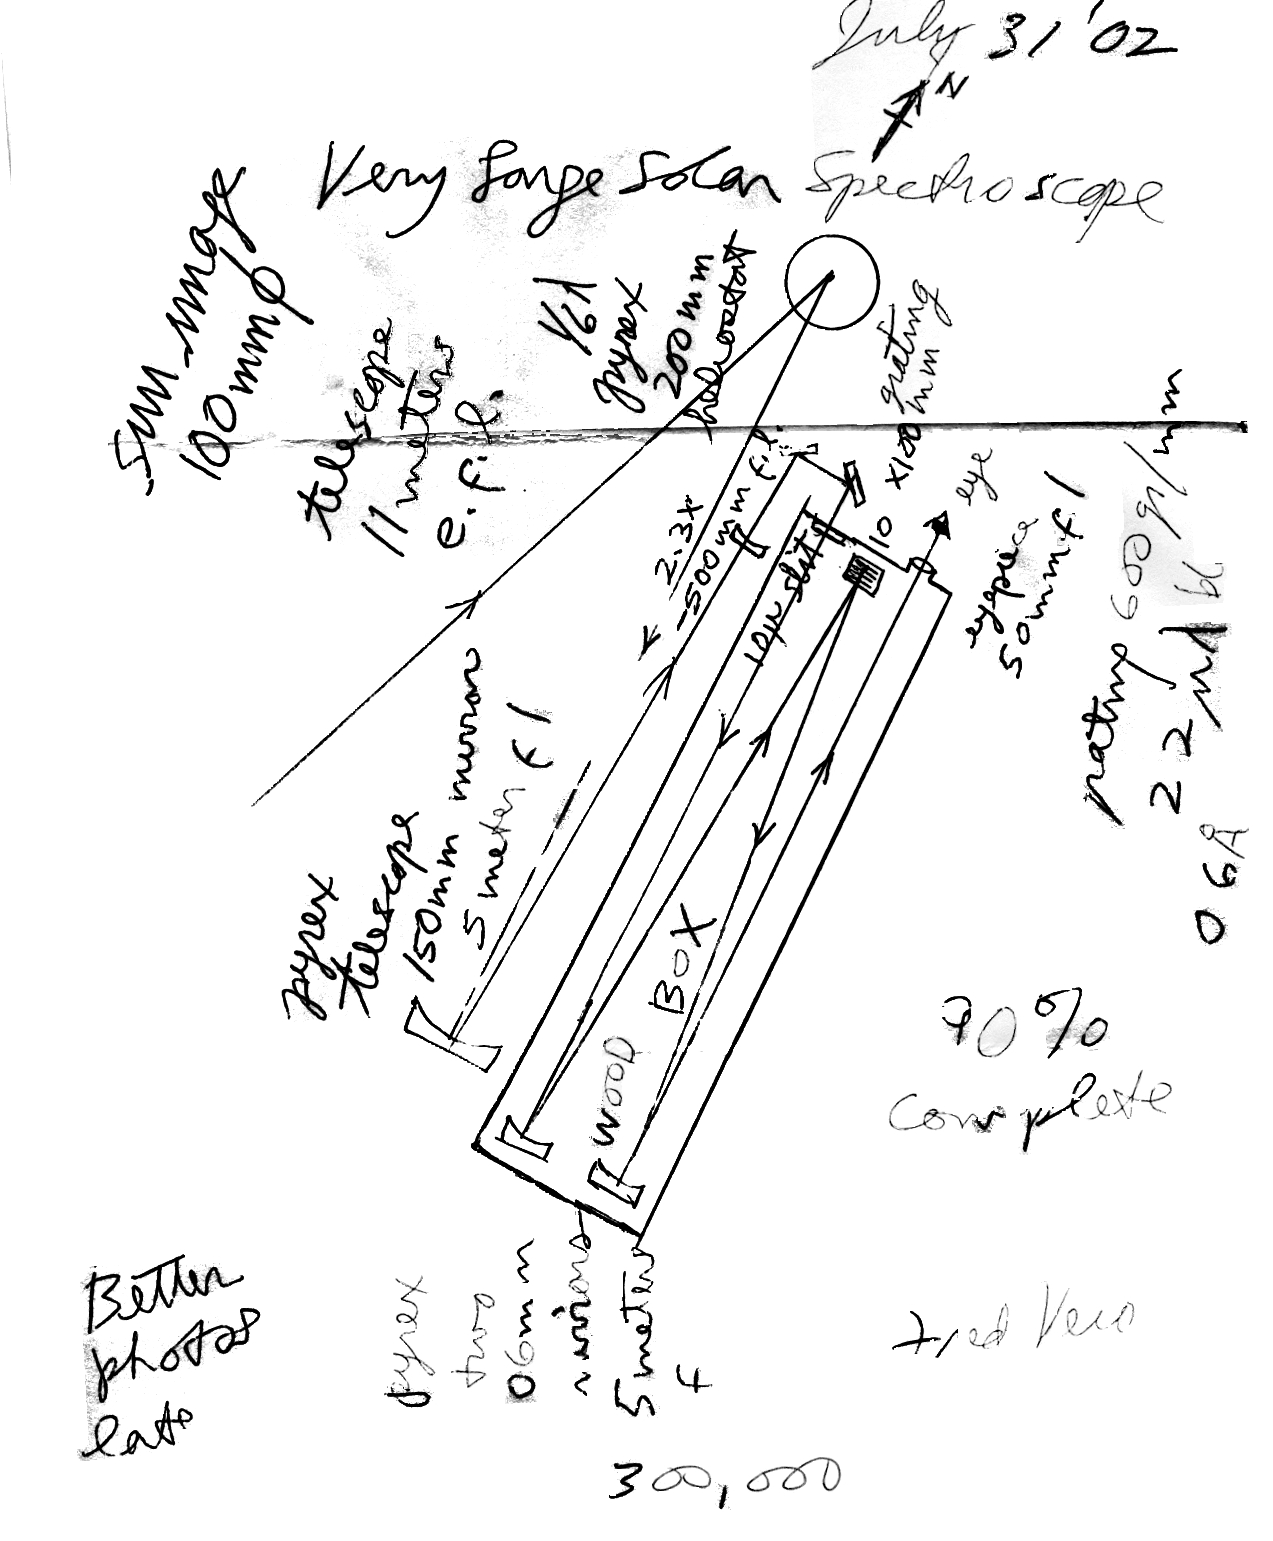 July 31 '02
N
Very Large Solar Spectroscope
Sun image
100mm φ
telescope
11 meters
e.f.l.
pyrex
200mm
heliostat
grating
x100 mm
2.3x
-500mm f.l.
10µ slit
10
eye
eyepiece
50mm f l
600 gr/mm
2 2nd bl
06Å
pyrex
telescope
150mm mirror
5 meter f l
WOOD BOX
90%
complete
Better
photos
pyrex
two
06mm
mirrors
5 meters
f
300,000